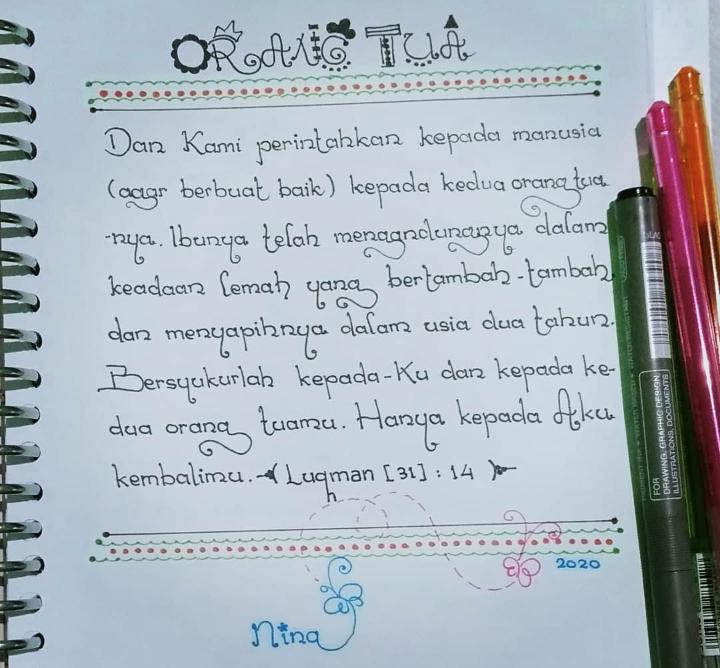 ORANG TUA
Dan Kami perintahkan kepada manusia
(aagr berbuat baik) kepada kedua orang tua
-nya. Ibunya telah mengandungnya dalam
keadaan lemah yang bertambah-tambah
dan menyapihnya dalam usia dua tahun.
Bersyukurlah kepada-Ku dan kepada ke-
dua orang tuamu. Hanya kepada Aku
kembalimu. (Luqman [31] : 14)
h
2020
Nina
FOR
DRAWING, GRAPHIC DESIGN,
ILLUSTRATIONS, DOCUMENTS